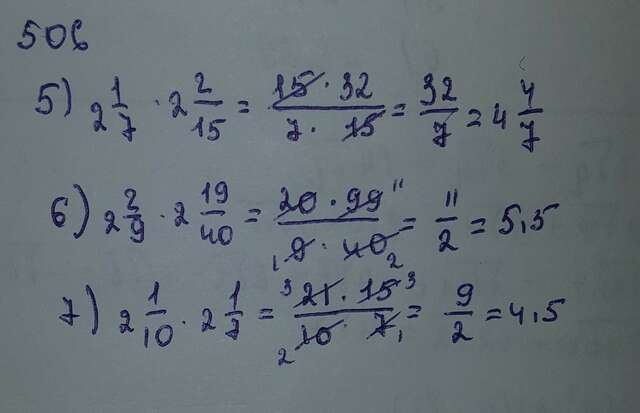 506
5) 2 1/7 · 2 2/15 = 15 · 32 / 7 · 15 = 32/7 = 4 4/7
6) 2 2/9 · 2 19/40 = 20 · 99 11 / 1 9 · 40 2 = 11/2 = 5,5
7) 2 1/10 · 2 1/7 = 3 21 · 15 3 / 2 10 · 7 1 = 9/2 = 4,5